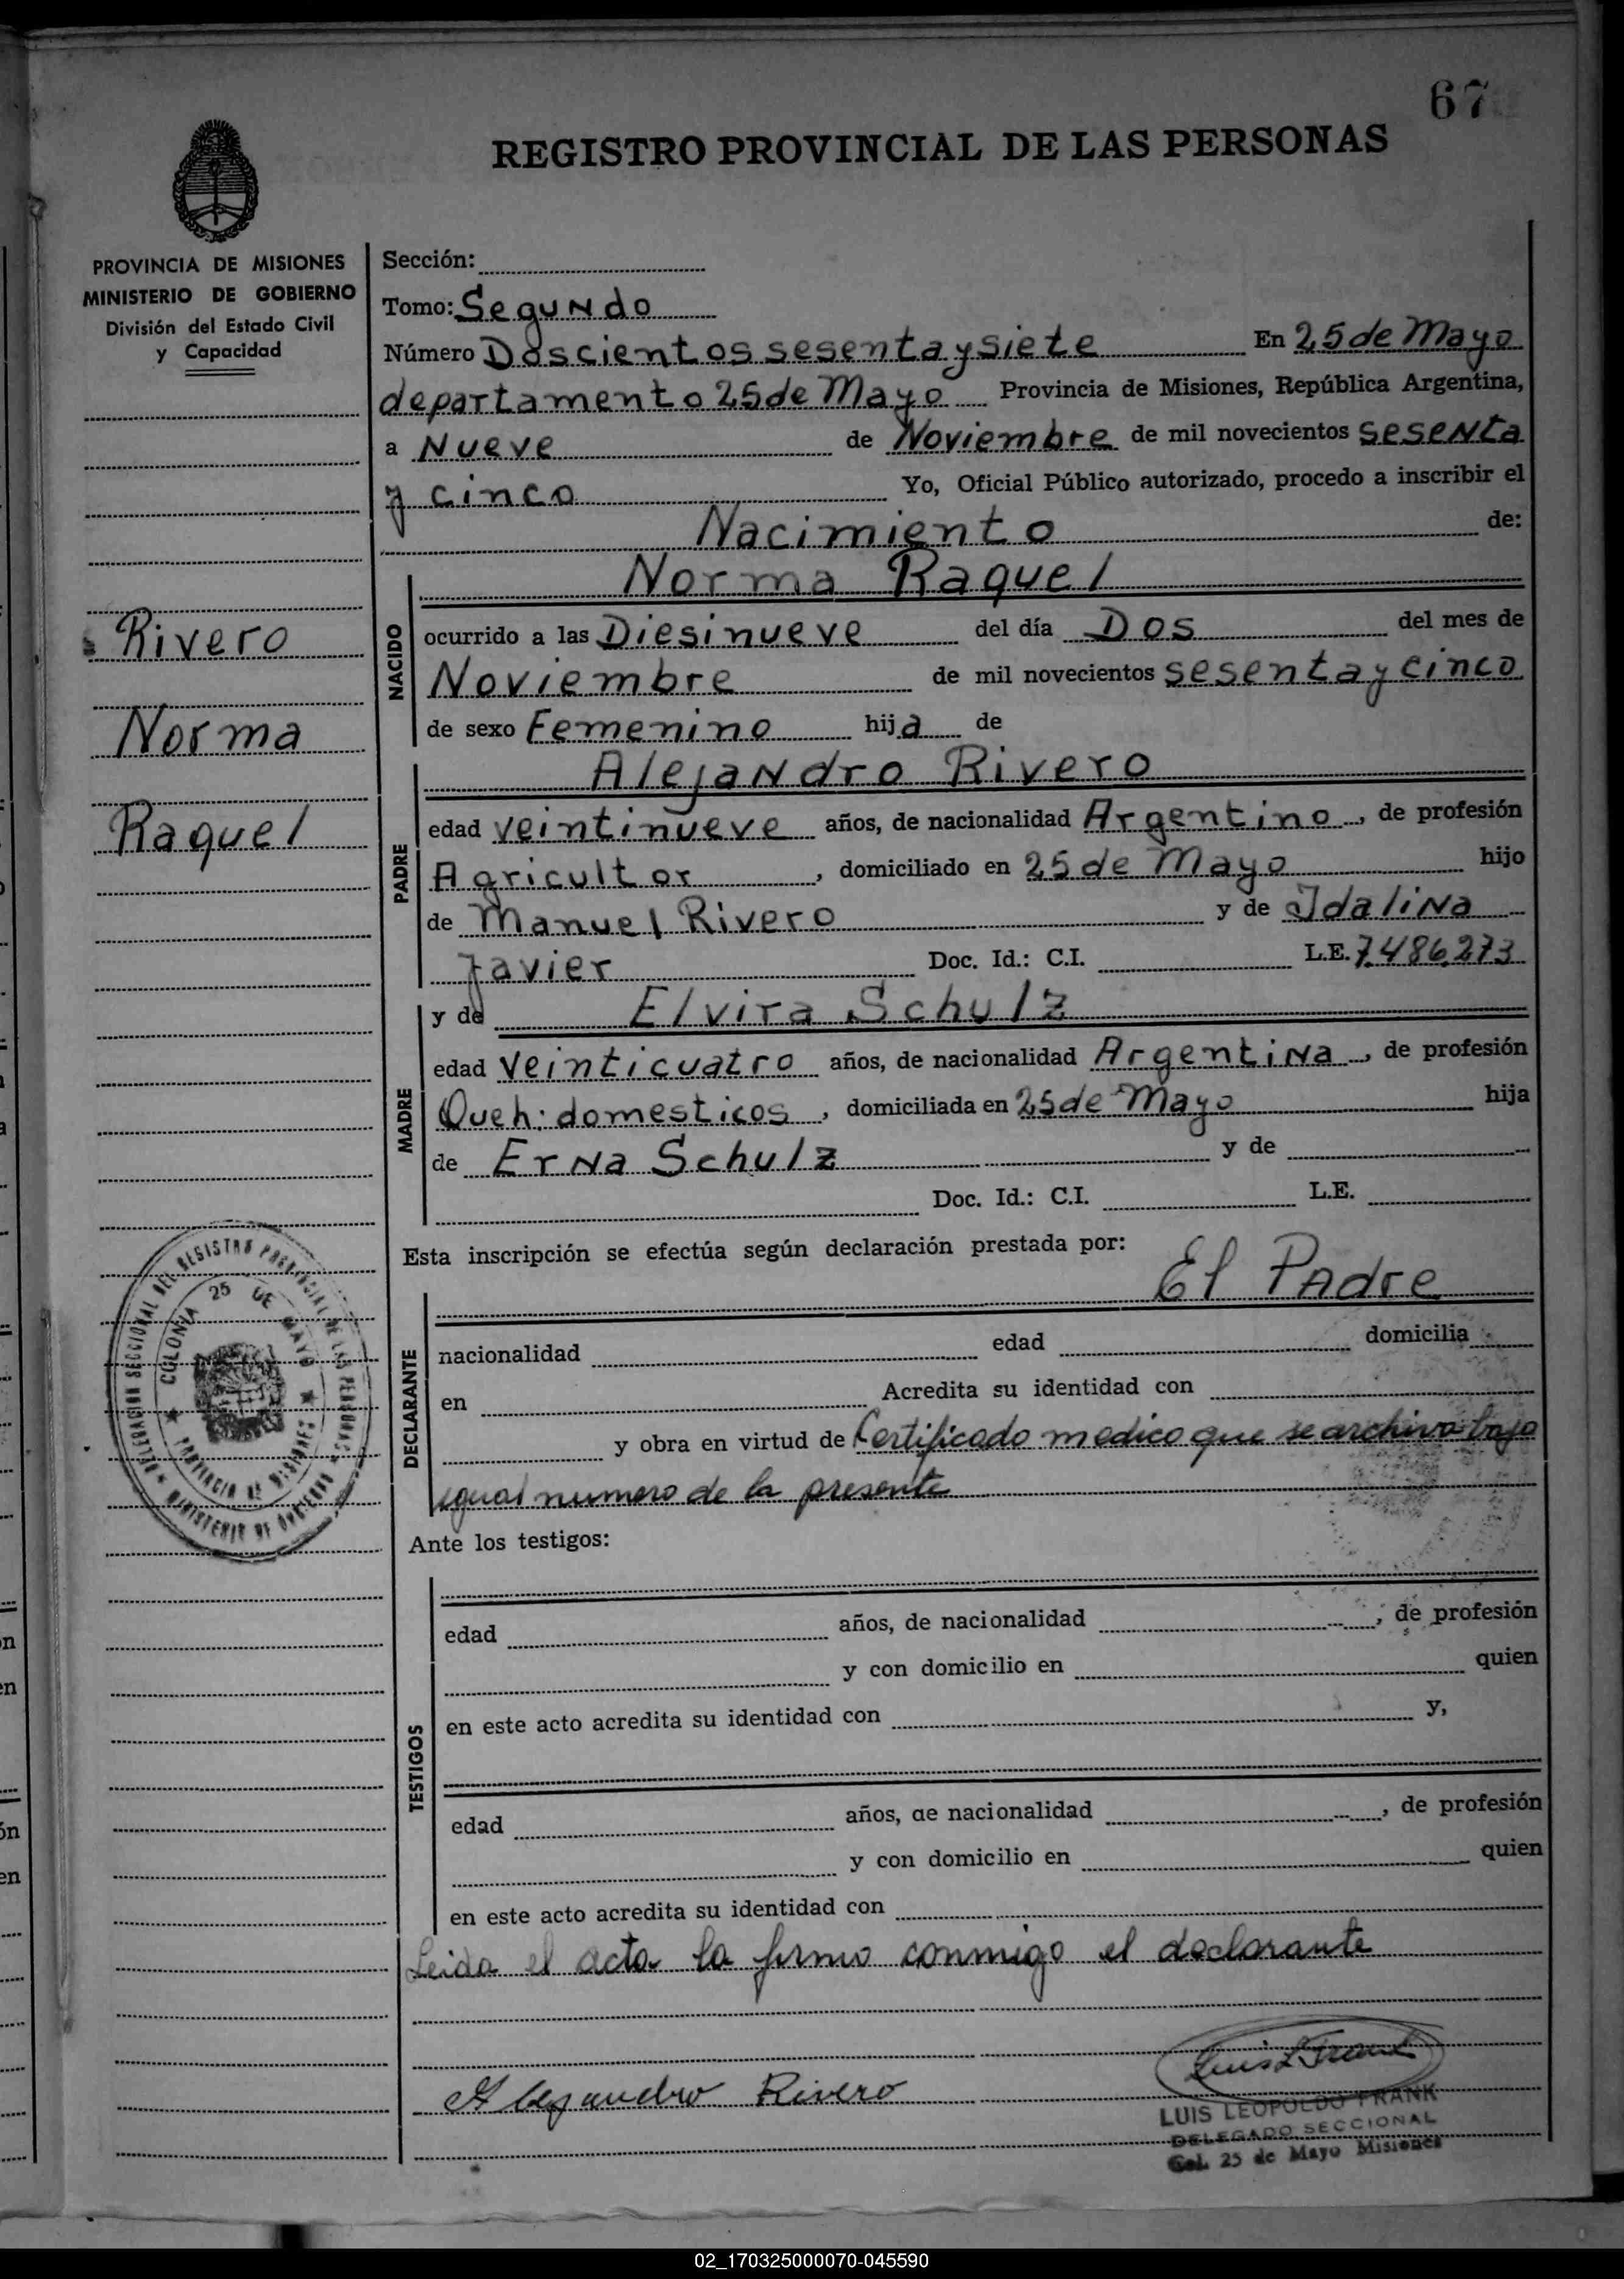 67
REGISTRO PROVINCIAL DE LAS PERSONAS
PROVINCIA DE MISIONES
MINISTERIO DE GOBIERNO
División del Estado Civil
y Capacidad
Rivero
Norma
Raquel
Sección:
Tomo: Segundo
Número Doscientos sesenta y siete En 25 de Mayo
departamento 25 de Mayo Provincia de Misiones, República Argentina,
a Nueve de Noviembre de mil novecientos sesenta
y cinco Yo, Oficial Público autorizado, procedo a inscribir el
Nacimiento de:
Norma Raquel
NACIDO
ocurrido a las Diesinueve del día Dos del mes de
Noviembre de mil novecientos sesenta y cinco
de sexo Femenino hija de
Alejandro Rivero
PADRE
edad veintinueve años, de nacionalidad Argentino, de profesión
Agricultor, domiciliado en 25 de Mayo hijo
de Manuel Rivero y de Idalina
Javier Doc. Id.: C.I. L.E. 7.486.273
y de Elvira Schulz
MADRE
edad veinticuatro años, de nacionalidad Argentina, de profesión
Queh: domesticos, domiciliada en 25 de Mayo hija
de Erna Schulz y de
Doc. Id.: C.I. L.E.
Esta inscripción se efectúa según declaración prestada por:
El Padre
DECLARANTE
nacionalidad edad domicilia
en Acredita su identidad con
y obra en virtud de Certificado medico que se archiva bajo
igual numero de la presente
DELEGACION SECCIONAL DEL REGISTRO PROVINCIAL DE LAS PERSONAS
MINISTERIO DE GOBIERNO
COLONIA 25 DE MAYO
PROVINCIA DE MISIONES
Ante los testigos:
TESTIGOS
edad años, de nacionalidad , de profesión
y con domicilio en quien
en este acto acredita su identidad con y,
edad años, de nacionalidad , de profesión
y con domicilio en quien
en este acto acredita su identidad con
Leida el acta la firmo conmigo el declarante
Alejandro Rivero
Luis L Frank
LUIS LEOPOLDO FRANK
DELEGADO SECCIONAL
Col. 25 de Mayo Misiones
02_170325000070-045590